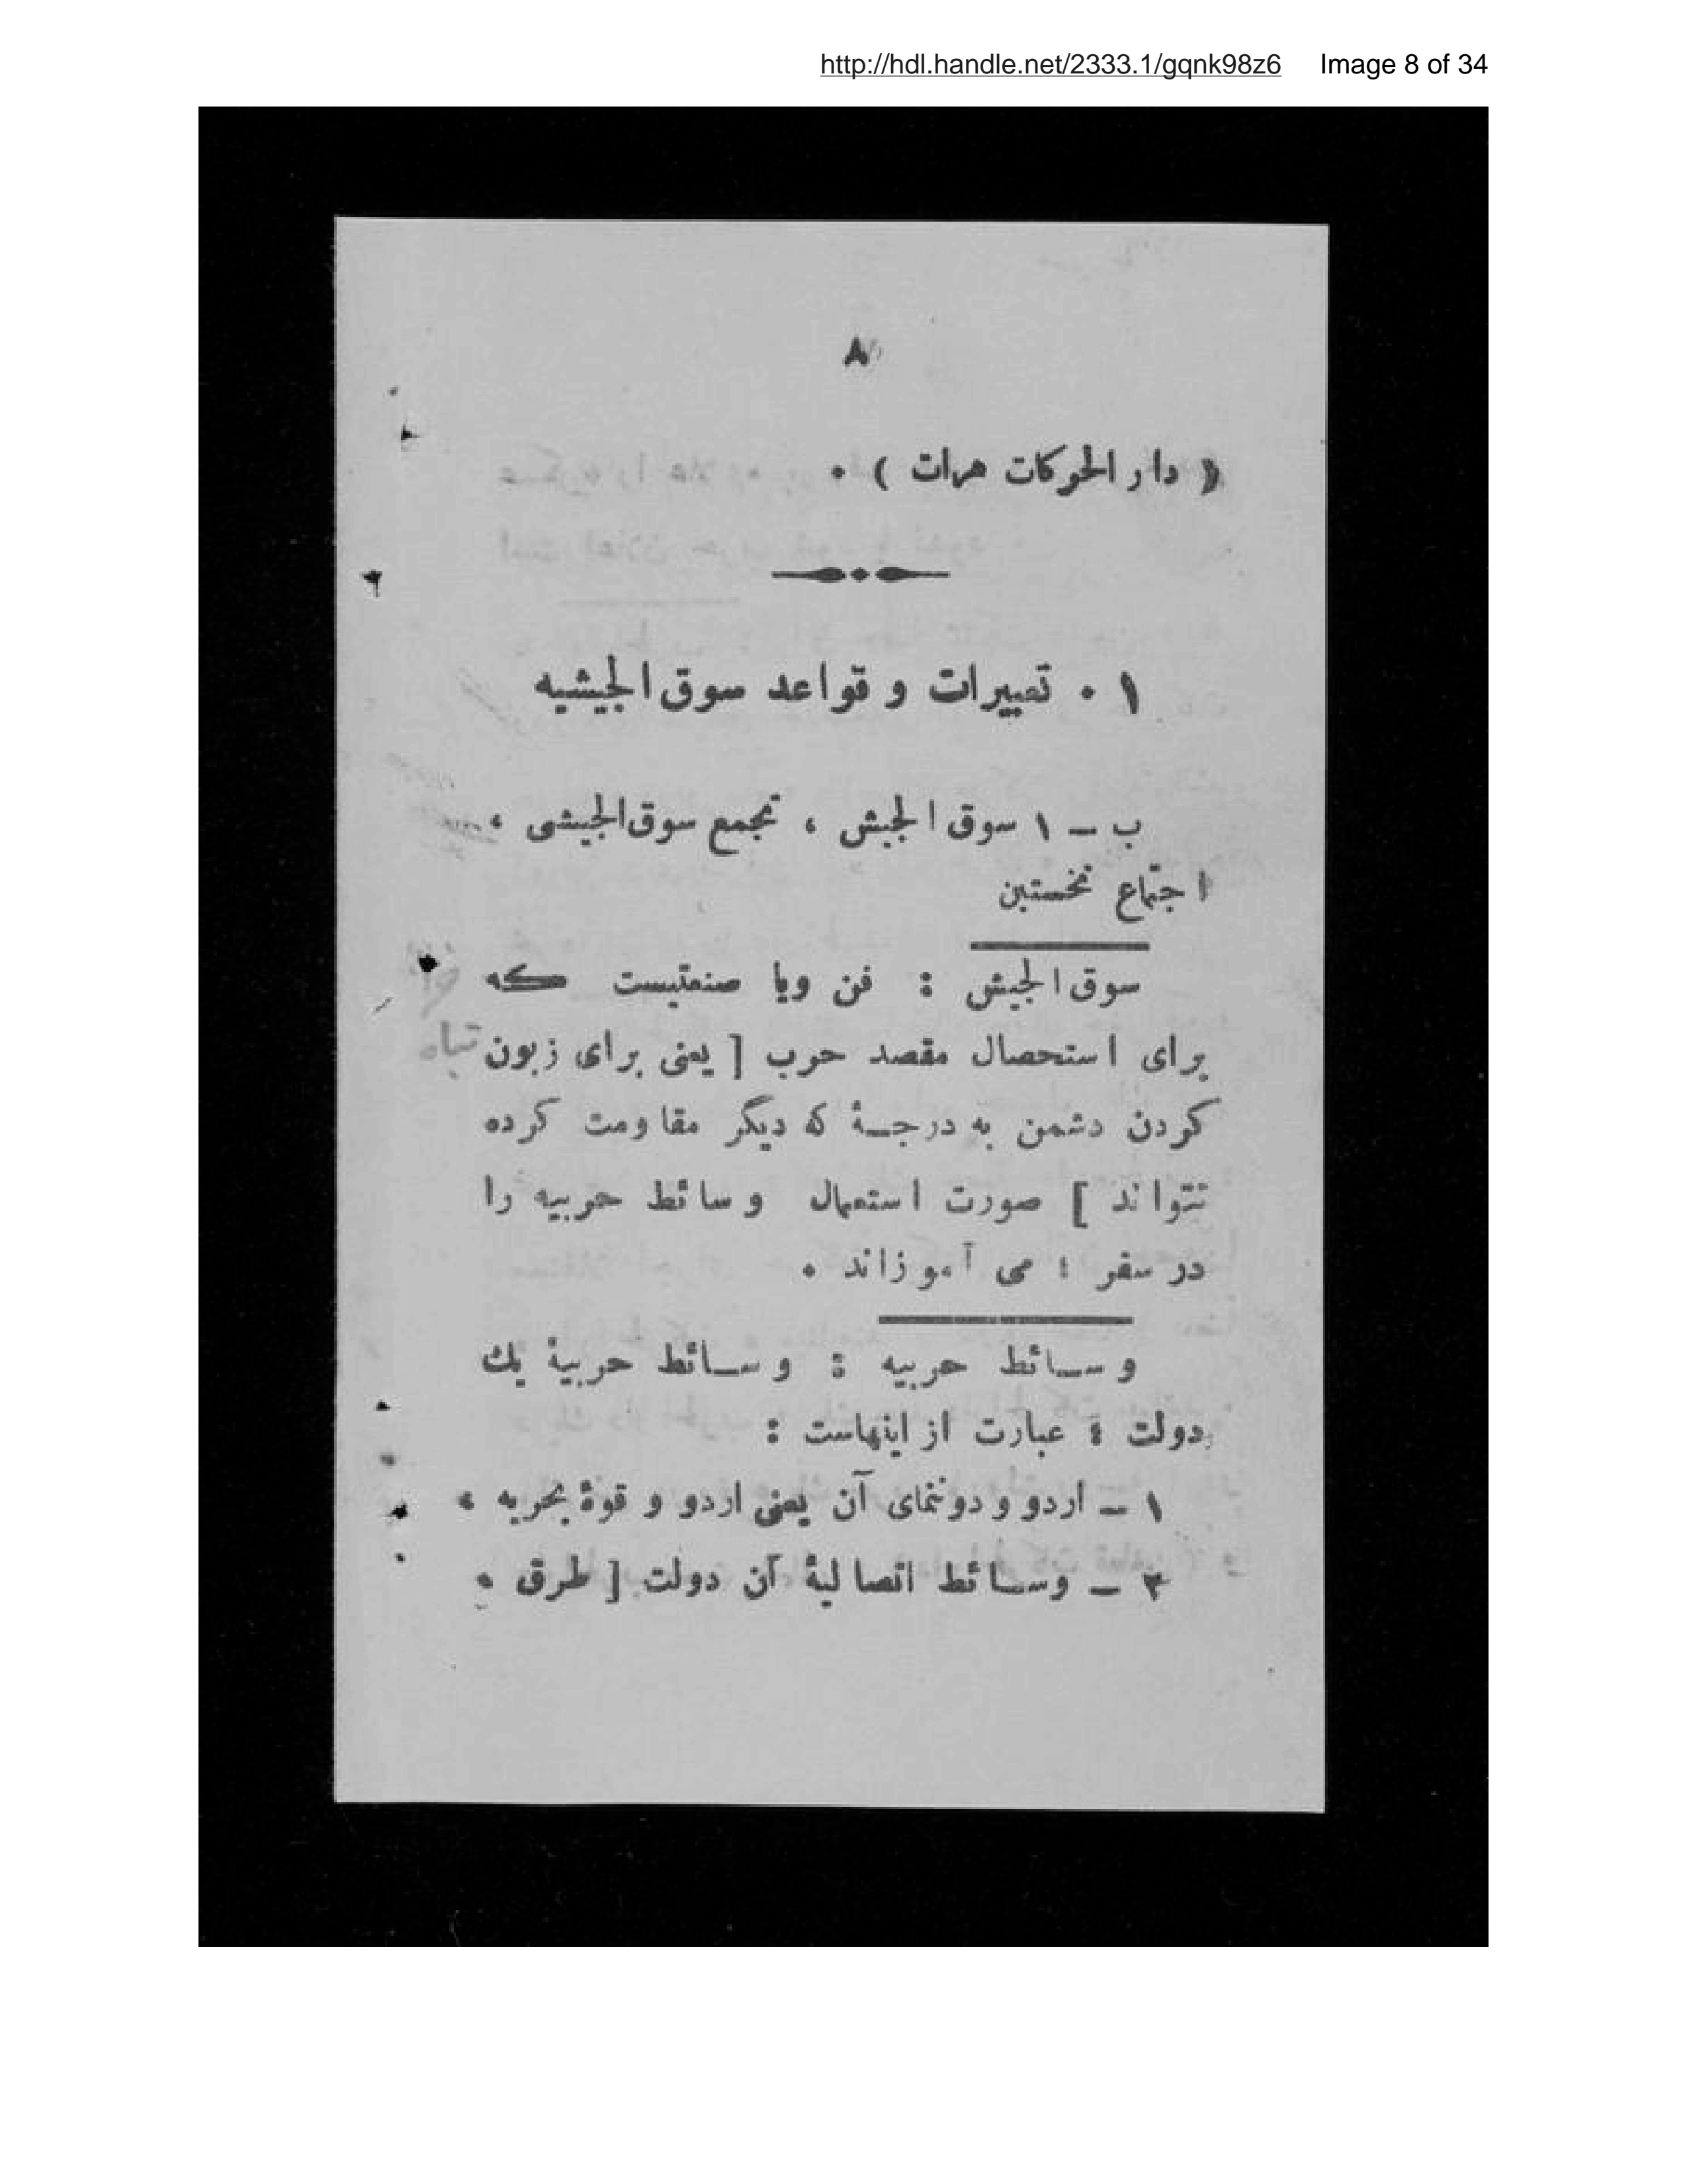 http://hdl.handle.net/2333.1/gqnk98z6 Image 8 of 34
۸
( دار الحركات هرات ) ۰
۱ ۰ تعبیرات و قواعد سوق الجیشیه
ب – ۱ سوق الجیش ، تجمع سوق الجیشی ،
اجتماع نخستین
سوق الجیش : فن ویا صنعتیست که
برای استحصال مقصد حرب [ یعنی برای زبون
کردن دشمن به درجۀ که دیگر مقاومت کرده
نتواند ] صورت استعمال وسائط حربیه را
در سفر ؛ می آموزاند ۰
وسائط حربیه : وسائط حربیۀ یك
دولت ؛ عبارت از اینهاست :
۱ – اردو و دوننمای آن یعنی اردو و قوۀ بحریه ،
۲ – وسائط اتصالیۀ آن دولت [ طرق ،